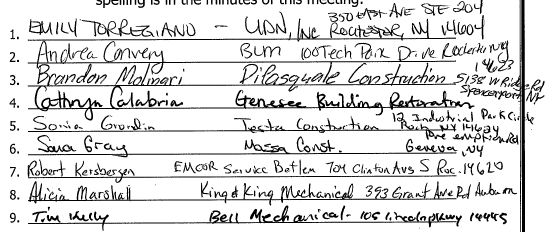 spelling is in the minutes of this meeting.
1. EMILY TORREGIANO - UDN, INC 350 EAST AVE STE 204 ROCHESTER, NY 14604
2. Andrea Convery BLM 100 Tech Park Drive Rochester NY 14623
3. Brandon Molinari DiPasquale Construction 5138 W Ridge Rd Spencerport NY
4. Cathryn Calabria Genesee Building Restoration
5. Sonia Grondin Testa Construction 12 Industrial Park Circle Roch, NY 14624
6. Sara Gray Massa Const. Pre emption Rd Geneva, NY
7. Robert Kersbergen EMCOR Service Betlem 704 Clinton Ave S Roc. 14620
8. Alicia Marshall King & King Mechanical 393 Grant Ave Rd Auburn
9. Tim Kelly Bell Mechanical - 105 Lincoln Pkwy 14445